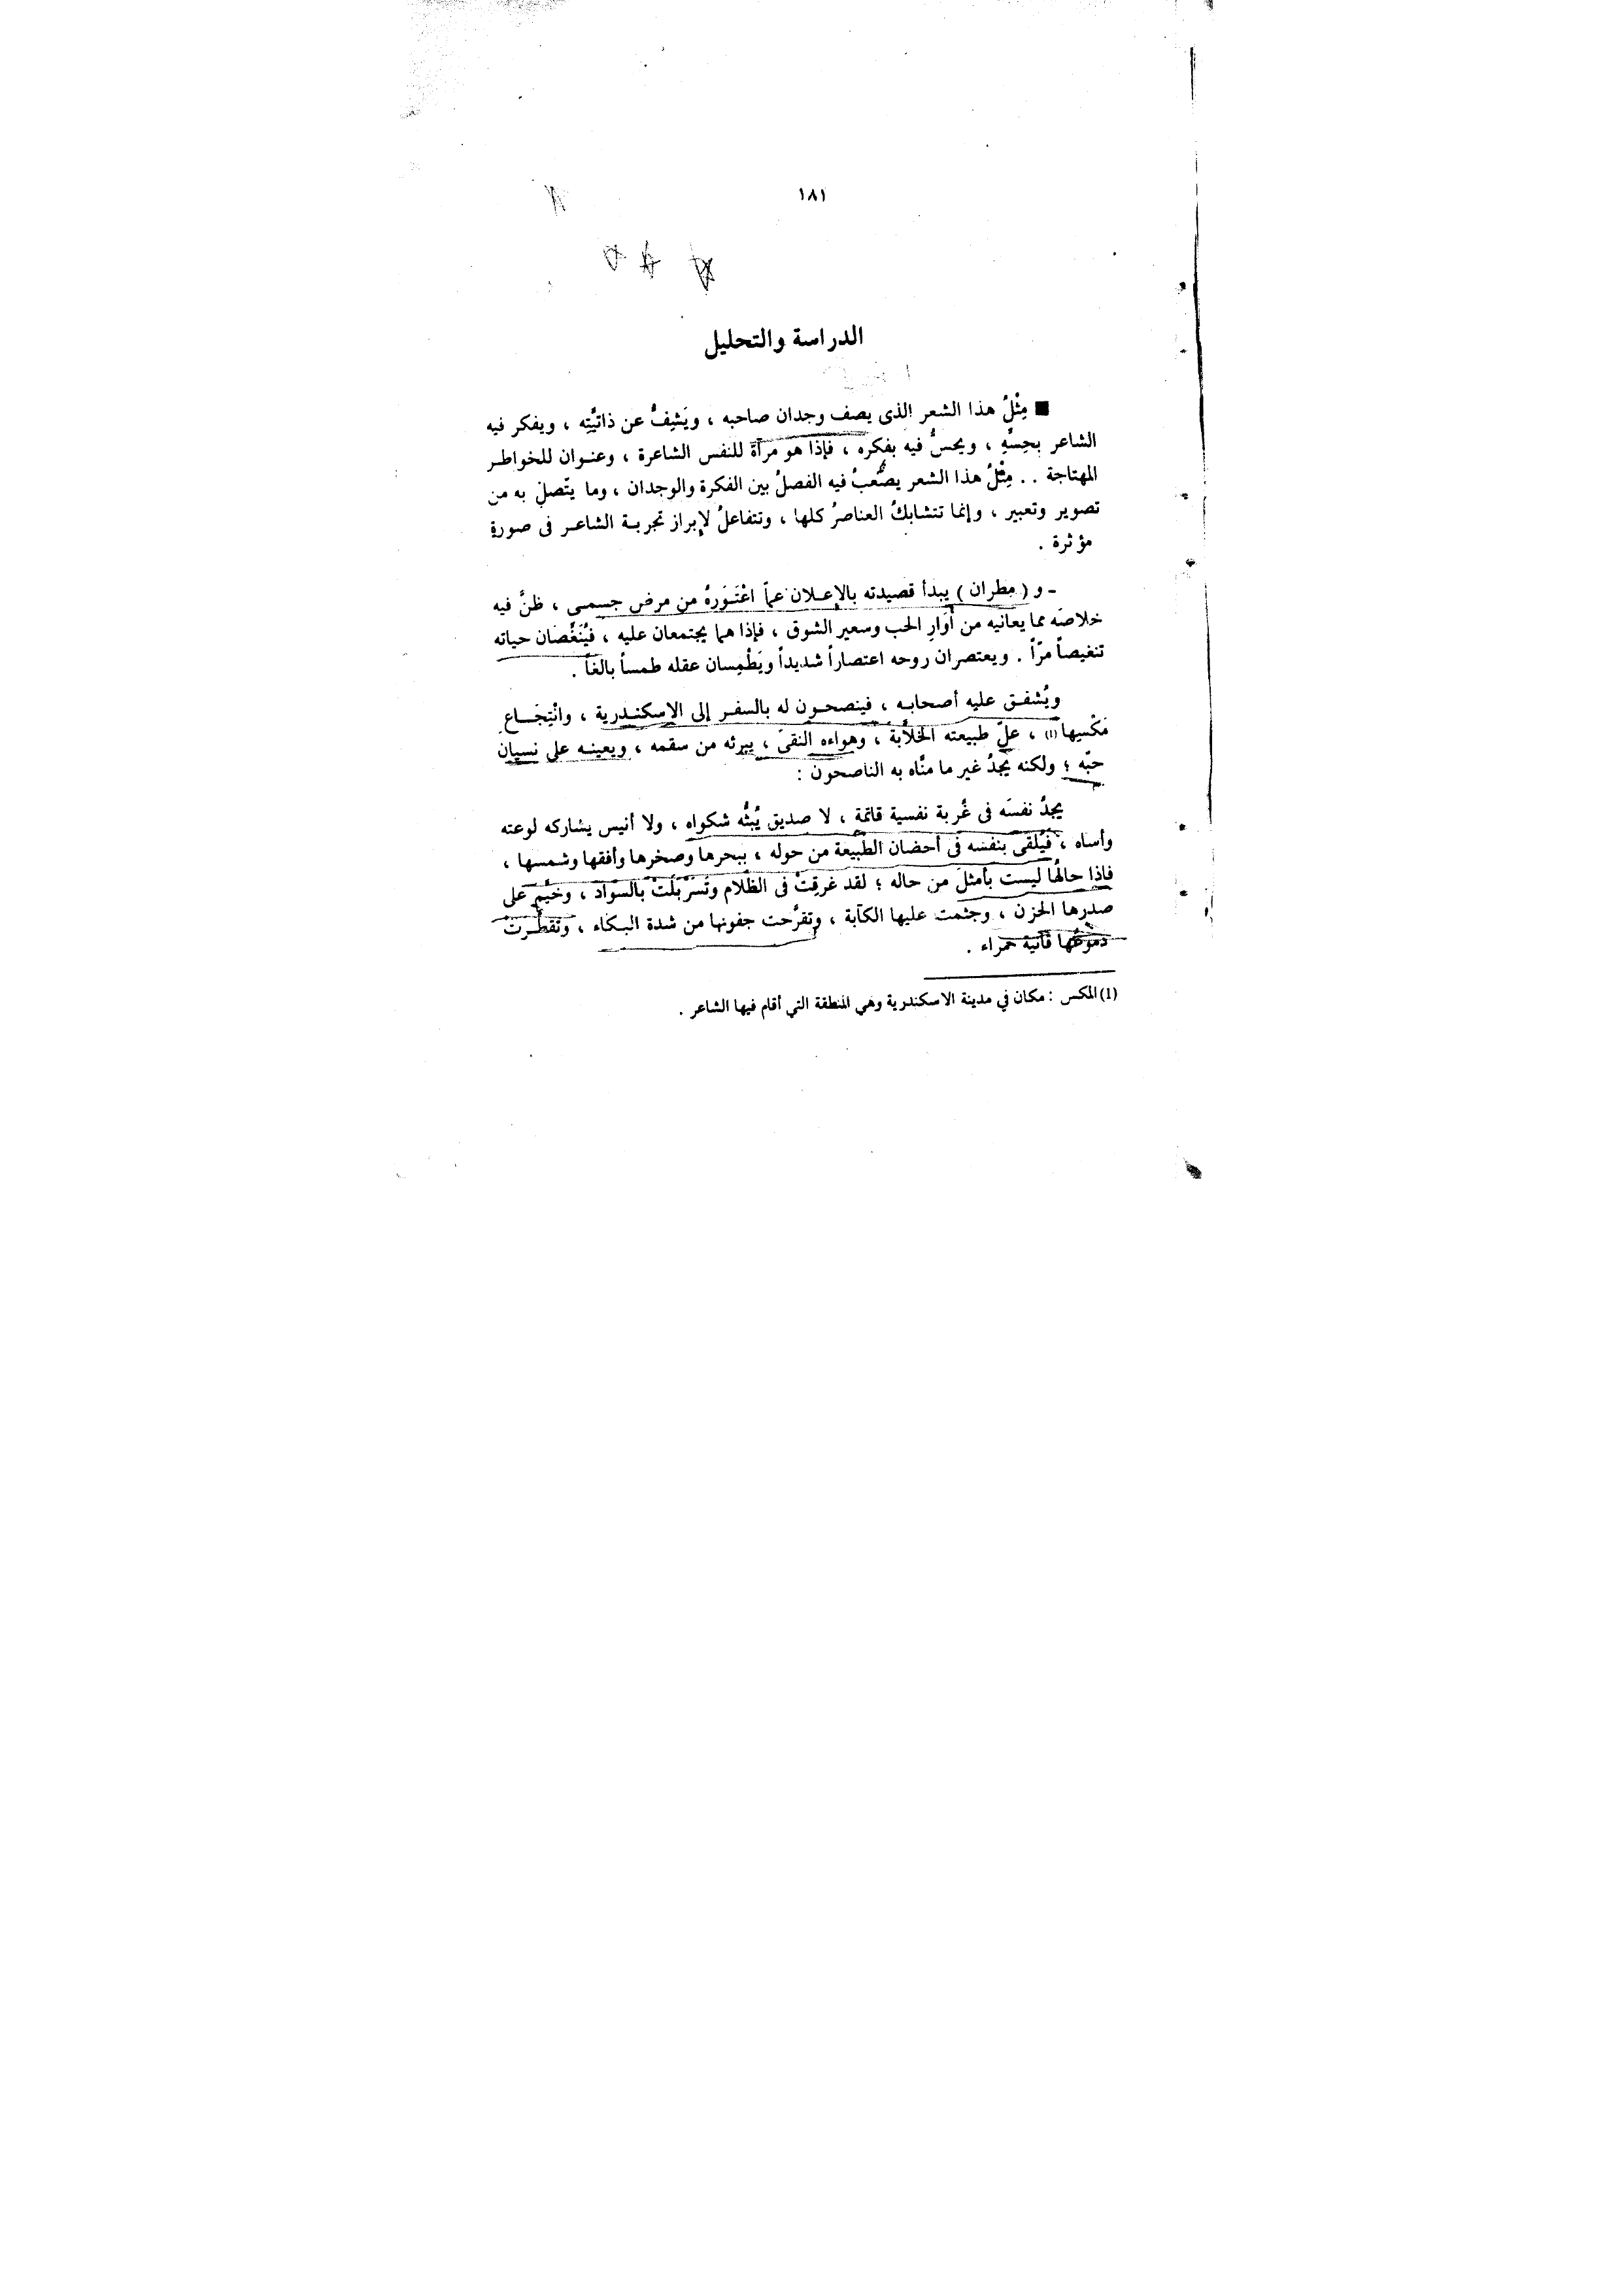 ١٨١
الدراسة والتحليل
■ مِثْلُ هذا الشعر الذى يصف وجدان صاحبه ، ويَشِفُّ عن ذاتيَّتِه ، ويفكر فيه
الشاعر بحِسِّهِ ، ويحسُّ فيه بفكره ، فإذا هو مرآة للنفس الشاعرة ، وعنوان للخواطر
المهتاجة . . مِثْلُ هذا الشعر يصْعبُ فيه الفصلُ بين الفكرة والوجدان ، وما يتّصل به من
تصوير وتعبير ، وإنما تتشابكُ العناصرُ كلها ، وتتفاعلُ لإبراز تجربة الشاعر فى صورةٍ
مؤثرة .
- و ( مطران ) يبدأ قصيدته بالإعلان عمّا اعْتَوَرهُ من مرض جسمى ، ظنَّ فيه
خلاصَه مما يعانيه من أُوَارِ الحب وسعير الشوق ، فإذا هما يجتمعان عليه ، فيُنَغِّصَان حياته
تنغيصاً مرّاً . ويعتصران روحه اعتصاراً شديداً ويَطْمِسان عقله طمساً بالغاً .
ويُشفق عليه أصحابه ، فينصحون له بالسفر إلى الإسكندرية ، وانْتِجَاع
مَكْسِها (١) ، علّ طبيعته الخلاَّبة ، وهواءه النقىَ ، يبرئه من سقمه ، ويعينه على نسيان
حبّه ؛ ولكنه يجدُ غير ما منَّاه به الناصحون :
يجدُ نفسَه فى غُربة نفسية قاتمة ، لا صديق يُبثُّه شكواه ، ولا أنيس يشاركه لوعته
وأساه ، فيُلقى بنفسه فى أحضان الطبيعة من حوله ، ببحرها وصخرها وأفقها وشمسها ،
فإذا حالُها ليست بأمثلَ من حاله ؛ لقد غرقتْ فى الظلام وتَسَرْبَلَتْ بالسواد ، وخيَّم على
صدرها الحزن ، وجثمت عليها الكآبة ، وتقرَّحت جفونها من شدة البكاء ، وتقطَّرتْ
دموعُها قانية حمراء .
(1) المكس : مكان في مدينة الاسكندرية وهي المنطقة التي أقام فيها الشاعر .